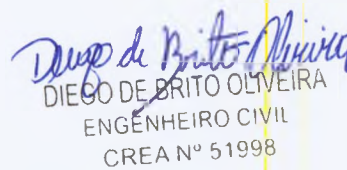 Diego de Brito Oliveira
DIEGO DE BRITO OLIVEIRA
ENGENHEIRO CIVIL
CREA Nº 51998